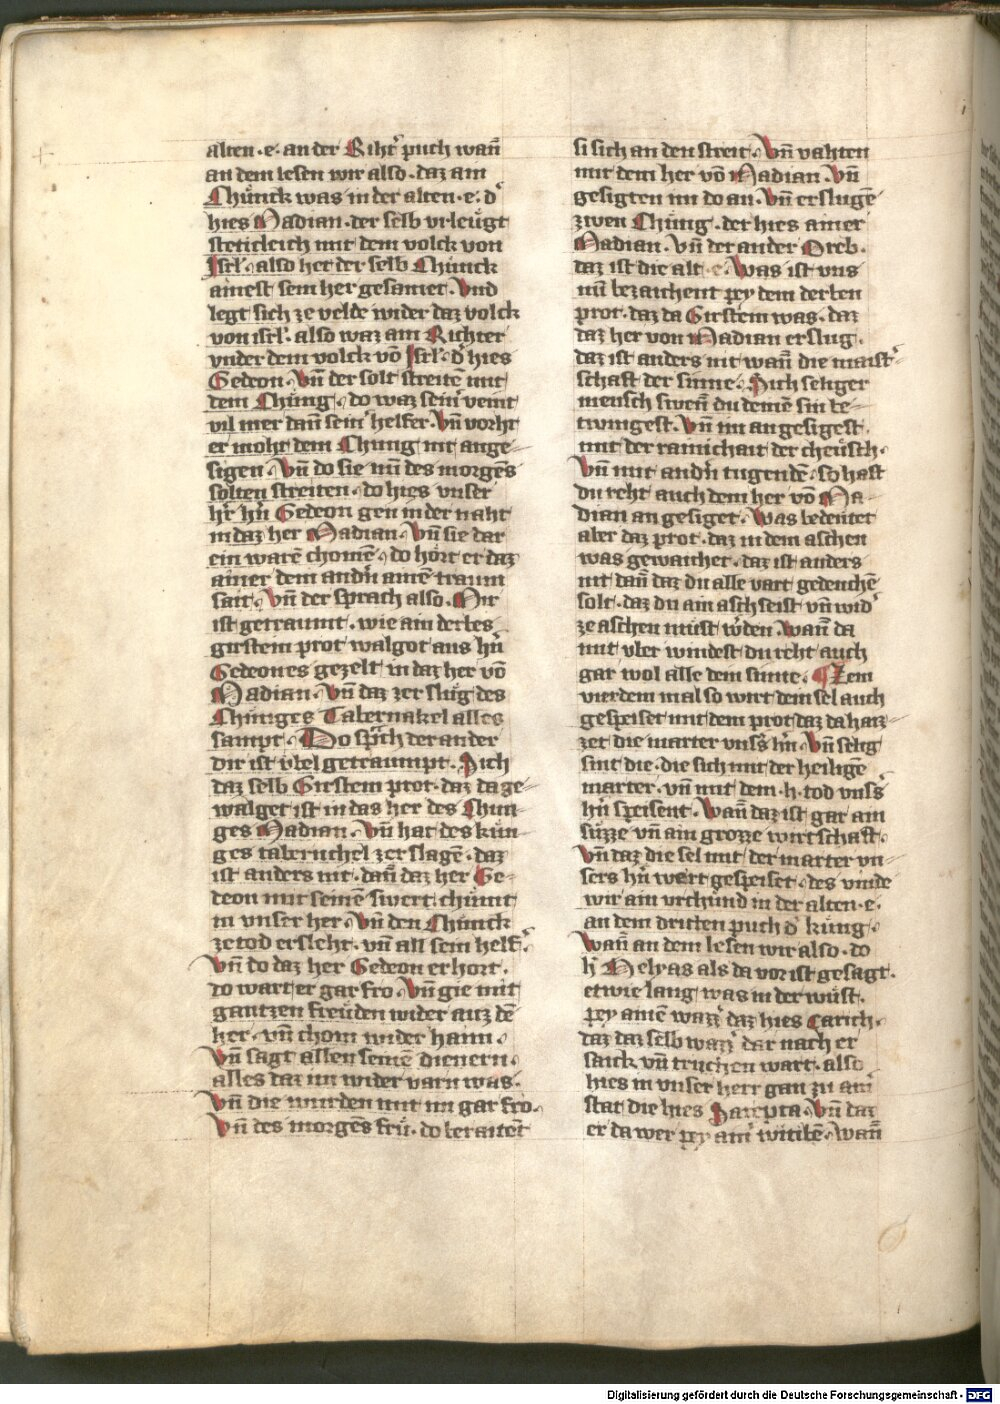 alten·e· an der Rihtʼ puch wañ
an dem lesen wir also· daz am
Chünck was in der alten·e· dʼ
hies Madian· der selb vrleügt
stetichleich mit dem volck von
Isrl· also het der selb Chünck
ainest sein her gesamet· Vnd
legt sich ze velde wider daz volck
von isrl· also waz ain Richter
vnder dem volck võ Isrl· dʼ hies
Gedeon· Vñ der solt streitẽ mit
dem Chüng· do waz seinʼ veint
vil mer dañ seinʼ helfer· Vñ vorht
er moht dem Chüng nit ange-
sigen· Vñ do sie nũ des morgẽs
solten streiten· do hies vnser
hʼr hʼn Gedeon gen in der naht
in daz her Madian· Vñ sie dar
ein warẽ chomẽ· do hort er daz
ainer dem andʼn ainẽ traum
sait· Vñ der sprach also· Mir
ist getraumt· wie ain derbes
girstein prot walgot aus hʼn
Gedeones gezelt in daz her võ
Madian· Vñ daz zer slüg des
Chüniges Tabernakel alles
sampt· Do sprʼch der ander
dir ist vbel getraumpt· Sich
daz selb Girstein prot· daz da ge-
walget ist in das her des Chün-
ges Madian· Vñ hat des kün-
ges tabernchel zer slagẽ· daz
ist anders nit· dañ daz her Ge-
deon mit seinẽ swert chümt
in vnser her· Vñ den Chünck
ze tod erslecht· vñ all sein helfʼ·
Vñ do daz her Gedeon erhort·
do wart er gar fro· Vñ gie mit
gantzen freüden wider auz dẽ
her· vñ chom wider haim·
Vñ sagt allen seinẽ dienern·
alles daz im wider varn was·
Vñ die wurden mit im gar fro·
Vñ des morgẽs frü· do beraitet
si sich an den streit· Vñ vahten
mit dem her võ Madian· Vñ
gesigten im do an· Vñ erslugẽ
zwen Chüng· der hies ainer
Madian· Vñ der ander Oreb·
daz ist die alt·e· Was ist vns
nũ bezaichent pey dem derben
prot· daz da Girstein was· daz
daz her von Madian erslug·
daz ist anders nit wañ die maistʼ-
schaft der sinne· Sich seliger
mensch swenñ du deinẽ sin be-
twingest· Vñ im angesigest·
mit der rainichait der cheüsch·
Vñ mit andʼn tugendẽ· so hast
du reht auch dem her võ Ma-
dian angesiget· Was bedeutet
aber daz prot· daz in dem aschen
was gewalchet· daz ist anders
nit dañ daz du alle vart gedenchẽ
solt· daz du ain asch seist vñ widʼ
ze aschen müst wʼden· Wañ da
mit vber windest du reht auch
gar wol alle dein sinne· Zem
vierdem mal so wirt dein sel auch
gespeiset mit dem prot daz da haiz-
zet die marter vnsʼs hʼn· Vñ selig
sint die· die sich mit der heiligẽ
marter· vñ mit dem·h·tod vnsʼs
hʼn speisent· Wañ daz ist gar ain
süzze vñ ain grozze wirtschaft·
Vñ daz die sel mit der marter vn-
sers hʼn wert gespeiset· des vinde
wir ain vrchünd in der alten·e·
an dem dritten puch dʼ küng·
Wañ an dem lesen wir also· do
hʼ Helyas als da vor ist gesagt·
etwie lang was in der wüst·
pey ainẽ wazzʼ daz hies Carich·
daz daz selb wazzʼ dar nach er
saick vñ truchen wart· also
hies in vnser herr gan zu ainʼ
stat die hies Sarepta· Vñ daz
er da wer pey ainʼ witibẽ· Wañ
Digitalisierung gefördert durch die Deutsche Forschungsgemeinschaft - DFG